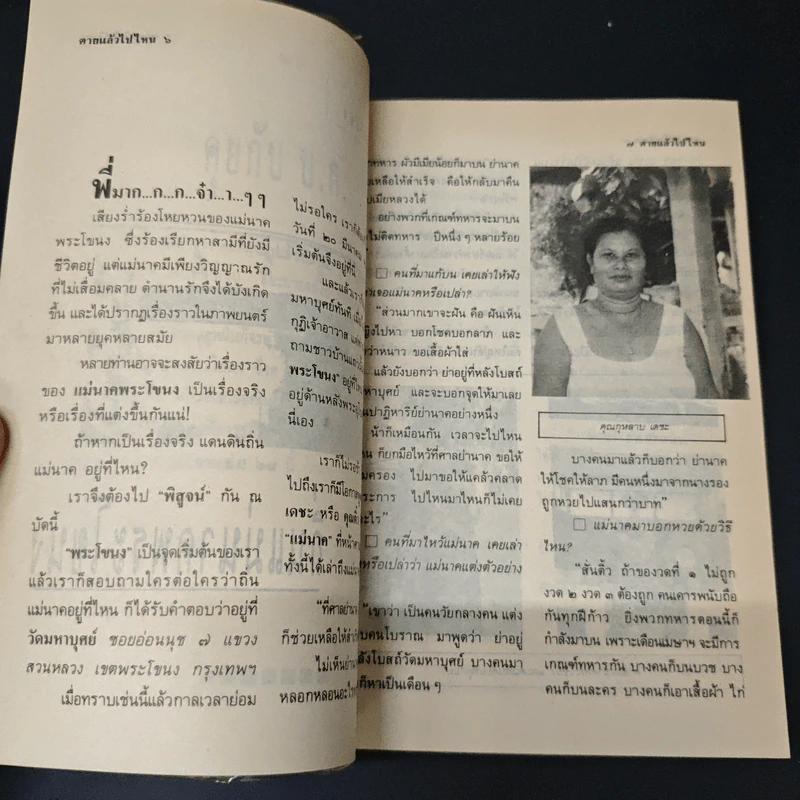 ตายแล้วไปไหน ๖
พี่มาก...ก...ก...จ๋า...า...ๆ ๆ
เสียงร่ำร้องโหยหวนของแม่นาค
พระโขนง ซึ่งร้องเรียกหาสามีที่ยังมี
ชีวิตอยู่ แต่แม่นาคมีเพียงวิญญาณรัก
ที่ไม่เสื่อมคลาย ตำนานรักจึงได้บังเกิด
ขึ้น และได้ปรากฏเรื่องราวในภาพยนตร์
มาหลายยุคหลายสมัย
หลายท่านอาจจะสงสัยว่าเรื่องราว
ของ แม่นาคพระโขนง เป็นเรื่องจริง
หรือเรื่องที่แต่งขึ้นกันแน่!
ถ้าหากเป็นเรื่องจริง แดนดินถิ่น
แม่นาค อยู่ที่ไหน?
เราจึงต้องไป “พิสูจน์” กัน ณ
บัดนี้
“พระโขนง” เป็นจุดเริ่มต้นของเรา
แล้วเราก็สอบถามใครต่อใครว่าถิ่น
แม่นาคอยู่ที่ไหน ก็ได้รับคำตอบว่าอยู่ที่
วัดมหาบุศย์ ซอยอ่อนนุช ๗ แขวง
สวนหลวง เขตพระโขนง กรุงเทพฯ
เมื่อทราบเช่นนี้แล้วกาลเวลาย่อม
ไม่รอใคร เราก็
วันที่ ๒๐ มีนาคม
เริ่มต้นจึงอยู่ที่นี่
และแล้วเรา
มหาบุศย์ทันที
กุฏิเจ้าอาวาส
ถามชาวบ้าน
พระโขนง” อยู่ที่
อยู่ด้านหลังพระ
นี่เอง
เราก็ไม่รอ
ไปถึงเราก็มีโอกาส
เดชะ หรือ คุณ
“แม่นาค” ที่หน้า
ทั้งนี้ได้เล่าถึงแม่
“ที่ศาลย่านาค
ก็ช่วยเหลือให้สำ
ไม่เห็นย่า
หลอกหลอนอะไร
๗ ตายแล้วไปไหน
ทหาร ผัวมีเมียน้อยก็มาบน ย่านาค
เหลือให้สำเร็จ คือให้กลับมาคืน
เมียหลวงได้
อย่างพวกที่เกณฑ์ทหารจะมาบน
ไม่ติดทหาร ปีหนึ่ง ๆ หลายร้อย
□ คนที่มาแก้บน เคยเล่าให้ฟัง
เจอแม่นาคหรือเปล่า?
“ส่วนมากเขาจะฝัน คือ ฝันเห็น
ไปหา บอกโชคบอกลาภ และ
ว่าหนาว ขอเสื้อผ้าใส่
แล้วยังบอกว่า ย่าอยู่ที่หลังโบสถ์
หาบุศย์ และจะบอกจุดให้มาเลย
นปาฏิหาริย์ย่านาคอย่างหนึ่ง
น้าก็เหมือนกัน เวลาจะไปไหน
ก็ยกมือไหว้ที่ศาลย่านาค ขอให้
มครอง ไปมาขอให้แคล้วคลาด
ระการ ไปไหนมาไหนก็ไม่เคย
อะไร”
□ คนที่มาไหว้แม่นาค เคยเล่า
หรือเปล่าว่า แม่นาคแต่งตัวอย่าง
“เขาว่า เป็นคนวัยกลางคน แต่ง
บคนโบราณ มาพูดว่า ย่าอยู่
ลังโบสถ์วัดมหาบุศย์ บางคนมา
ก็หาเป็นเดือน ๆ
คุณกุหลาบ เดชะ
บางคนมาแล้วก็บอกว่า ย่านาค
ให้โชคให้ลาภ มีคนหนึ่งมาจากนางรอง
ถูกหวยไปแสนกว่าบาท”
□ แม่นาคมาบอกหวยด้วยวิธี
ไหน?
“สั่นติ้ว ถ้าของวดที่ ๑ ไม่ถูก
งวด ๒ งวด ๓ ต้องถูก คนเคารพนับถือ
กันทุกฝีก้าว ยิ่งพวกทหารตอนนี้ก็
กำลังมาบน เพราะเดือนเมษาฯ จะมีการ
เกณฑ์ทหารกัน บางคนก็บนบวช บาง
คนก็บนละคร บางคนก็เอาเสื้อผ้า ไก่